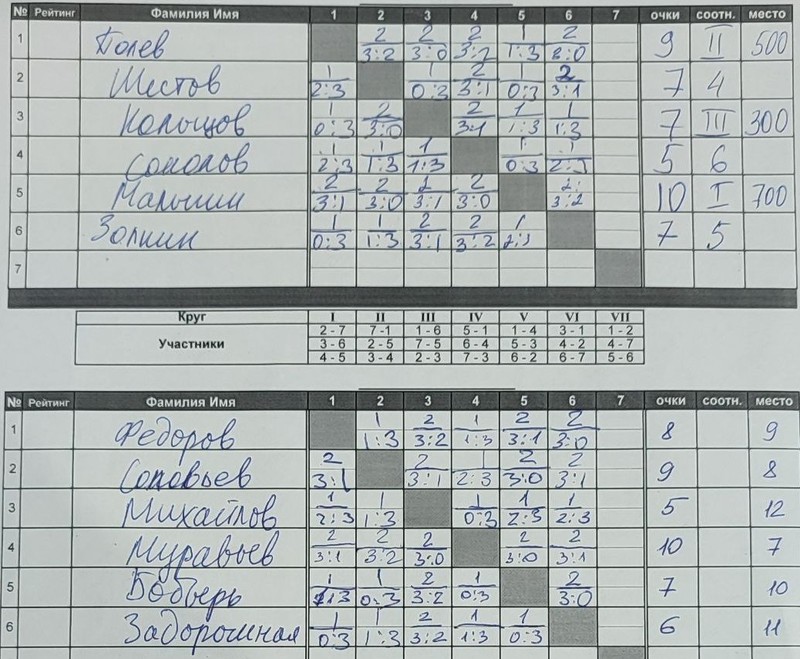 № Рейтинг Фамилия Имя 1 2 3 4 5 6 7 очки соотн. место
1 Полев 2 2 2 1 2 9 II 500
3:2 3:0 3:2 1:3 3:0
2 Шестов 1 1 2 1 2 7 4
2:3 0:3 3:1 0:3 3:1
3 Кольцов 1 2 2 1 1 7 III 300
0:3 3:0 3:1 1:3 1:3
4 Соколов 1 1 1 1 1 5 6
2:3 1:3 1:3 0:3 2:3
5 Малышин 2 2 2 2 2 10 I 700
3:1 3:0 3:1 3:0 3:2
6 Залкин 1 1 2 2 1 7 5
0:3 1:3 3:1 3:2 2:3
7
Круг I II III IV V VI VII
2 - 7 7 - 1 1 - 6 5 - 1 1 - 4 3 - 1 1 - 2
Участники 3 - 6 2 - 5 7 - 5 6 - 4 5 - 3 4 - 2 4 - 7
4 - 5 3 - 4 2 - 3 7 - 3 6 - 2 6 - 7 5 - 6
№ Рейтинг Фамилия Имя 1 2 3 4 5 6 7 очки соотн. место
1 Федоров 1 2 1 2 2 8 9
1:3 3:2 1:3 3:1 3:0
2 Соловьев 2 2 1 2 2 9 8
3:1 3:1 2:3 3:0 3:1
3 Михайлов 1 1 1 1 1 5 12
2:3 1:3 0:3 2:3 2:3
4 Муравьев 2 2 2 2 2 10 7
3:1 3:2 3:0 3:0 3:1
5 Бобырь 1 1 2 1 2 7 10
1:3 0:3 3:2 0:3 3:0
6 Задорожная 1 1 2 1 1 6 11
0:3 1:3 3:2 1:3 0:3